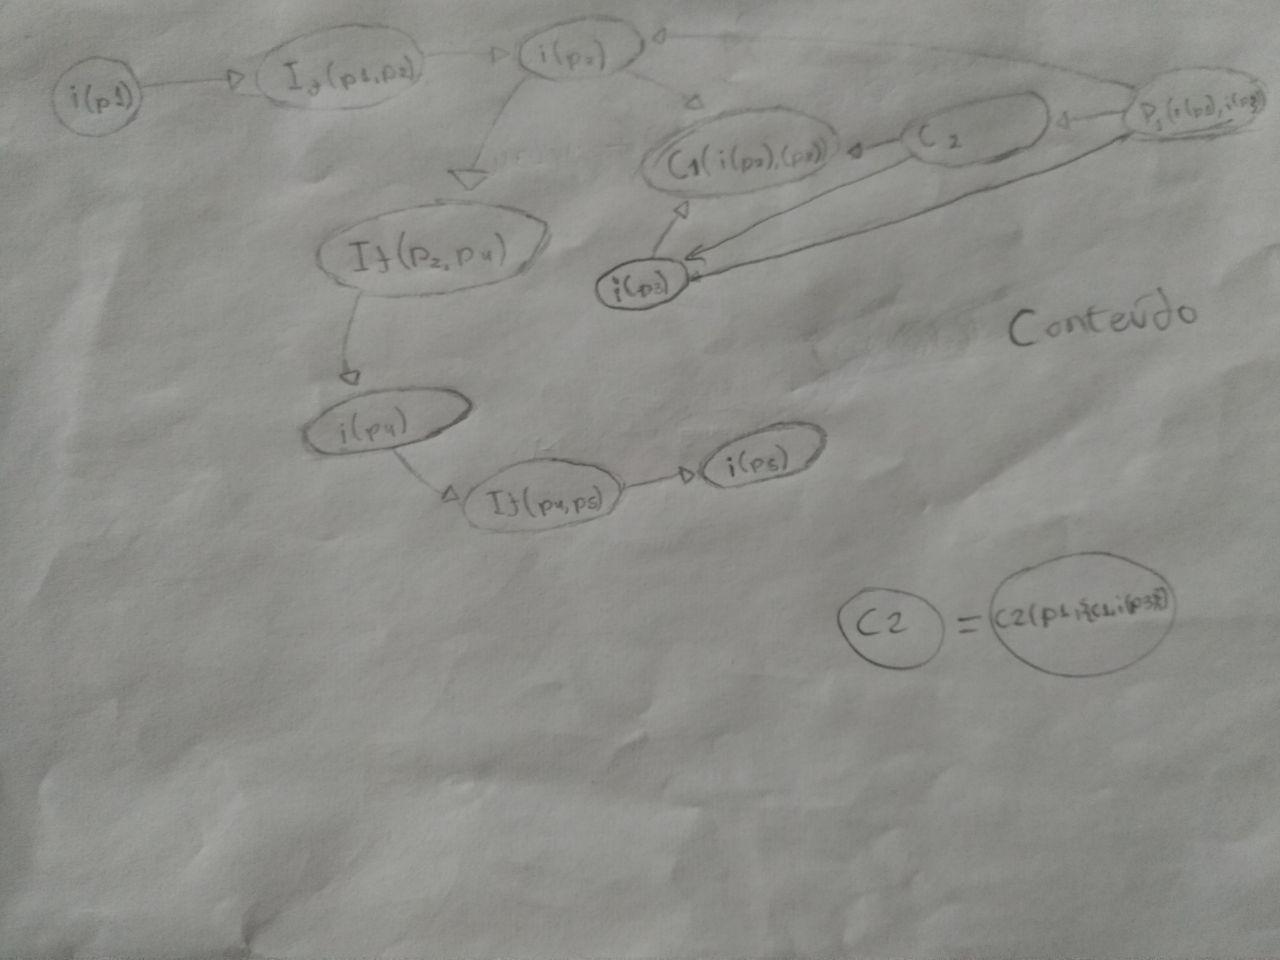 i(p1)
If(p1,p2)
i(p2)
C1(i(p2),(p3))
C2
If(p2,p4)
i(p3)
Conteúdo
i(p4)
If(p4,p5)
i(p5)
C2 = C2(p1,{C1,i(p3)})